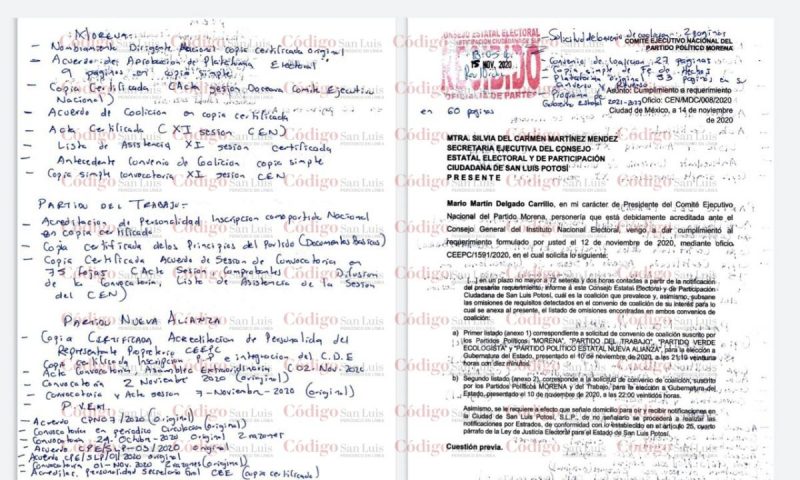 MORENA:
- Nombramiento Dirigente Nacional copia certificada original
- Acuerdo de Aprobación de Plataforma Electoral,
9 paginas en copia simple
- Copia Certificada (Acta Sesion Comite Ejecutivo
Nacional)
- Acuerdo de Coalicion en copia certificada
- Acta Certificada (XI Sesion CEN)
- Lista de Asistencia XI sesion certificada
- Antecedente Convenio de Coalicion copia simple
- Copia simple convocatoria XI sesion CEN
PARTIDO DEL TRABAJO:
- Acreditacion de Personalidad Inscripcion como partido Nacional
en copia certificada
- Copia certificada de los Principios del Partido (Documentos Basicos)
- Copia Certificada Acuerdo de Sesion de Convocatoria en
75 fojas (Acta Sesion, Comprobantes Difusion
de la Convocatoria, Lista de Asistencia de la Sesion
del CEN)
PARTIDO NUEVA ALIANZA:
- Copia CERTIFICADA Acreditacion de Personalidad del
Representante Propietario CEEPC
- Copia certificada inscripcion e integracion del C.D.E
- Acta Convocatoria Asamblea Extraordinaria (02-Nov-2020
- Convocatoria 2 Noviembre 2020 (original)
- Convocatoria y Acta sesion 7-Noviembre-2020 (original)
P.V.E.M
- Acuerdo CPN07/2020 (original)
- Convocatoria en periodico Circulacion (original)
- Convocatoria 29 Octubre-2020 original 2 razones
- Acuerdo CPE/SLP-03/2020 original
- Acuerdo CPE/SLP/01/2020 original
- Convocatoria 01-NOV-2020 2 razones (original)
- Acreditac. Personalidad Secretario Gral CEE (copia certificada)
Código San Luis
CONSEJO ESTATAL ELECTORAL
PARTICIPACIÓN CIUDADANA DE
RECIBIDO
15 NOV. 2020
OFICIALIA DE PARTES
Solicitud de convenio de coalicion, 2 paginas
Convenio de Coalicion 27 paginas
Copia simple de Fe de Hechos
Plataforma original 33 paginas en su
Programa de
Gobierno Estatal 2021-2027
en 60 paginas
COMITÉ EJECUTIVO NACIONAL DEL
PARTIDO POLÍTICO MORENA
Asunto: Cumplimiento a requerimiento
Oficio: CEN/MDC/008/2020
Ciudad de México, a 14 de noviembre
de 2020
MTRA. SILVIA DEL CARMEN MARTÍNEZ MENDEZ
SECRETARIA EJECUTIVA DEL CONSEJO
ESTATAL ELECTORAL Y DE PARTICIPACIÓN
CIUDADANA DE SAN LUIS POTOSÍ
P R E S E N T E
Mario Martín Delgado Carrillo, en mi carácter de Presidente del Comité Ejecutivo
Nacional del Partido Morena, personería que está debidamente acreditada ante el
Consejo General del Instituto Nacional Electoral, vengo a dar cumplimiento al
requerimiento formulado por usted el 12 de noviembre de 2020, mediante oficio
CEEPC/1591/2020, en el cual solicita lo siguiente:
[...] en un plazo no mayor a 72 setenta y dos horas contadas a partir de la notificación
del presente requerimiento, informe a este Consejo Estatal Electoral y de Participación
Ciudadana de San Luis Potosí, cuál es la coalición que prevalece y, asimismo, subsane
las omisiones de requisitos detectados en el convenio de coalición de su interés para lo
cual se anexa al presente, el listado de omisiones encontradas en ambos convenios de
coalición:
a) Primer listado (anexo 1) correspondiente a solicitud de convenio de coalición suscrito
por los Partidos Políticos "MORENA", "PARTIDO DEL TRABAJO", "PARTIDO VERDE
ECOLOGISTA" y "PARTIDO POLÍTICO ESTATAL NUEVA ALIANZA", para la elección a
Gubernatura del Estado, presentado el 10 de noviembre de 2020, a las 21:10 veintiún
horas con diez minutos.
b) Segundo listado (anexo 2), corresponde a la solicitud de convenio de coalición, suscrito
por los Partidos Políticos MORENA y del Trabajo, para la elección a Gubernatura del
Estado, presentado el 10 de noviembre de 2020, a las 22:00 veintidós horas.
Asimismo, se le requiere a efecto que señale domicilio para oír y recibir notificaciones en
la Ciudad de San Luis Potosí, S.L.P., de no señalarlo se procederá a realizar las
notificaciones por Estrados, de conformidad con lo establecido en el artículo 25, cuarto
párrafo de la Ley de Justicia Electoral para el Estado de San Luis Potosí.
Cuestión previa.